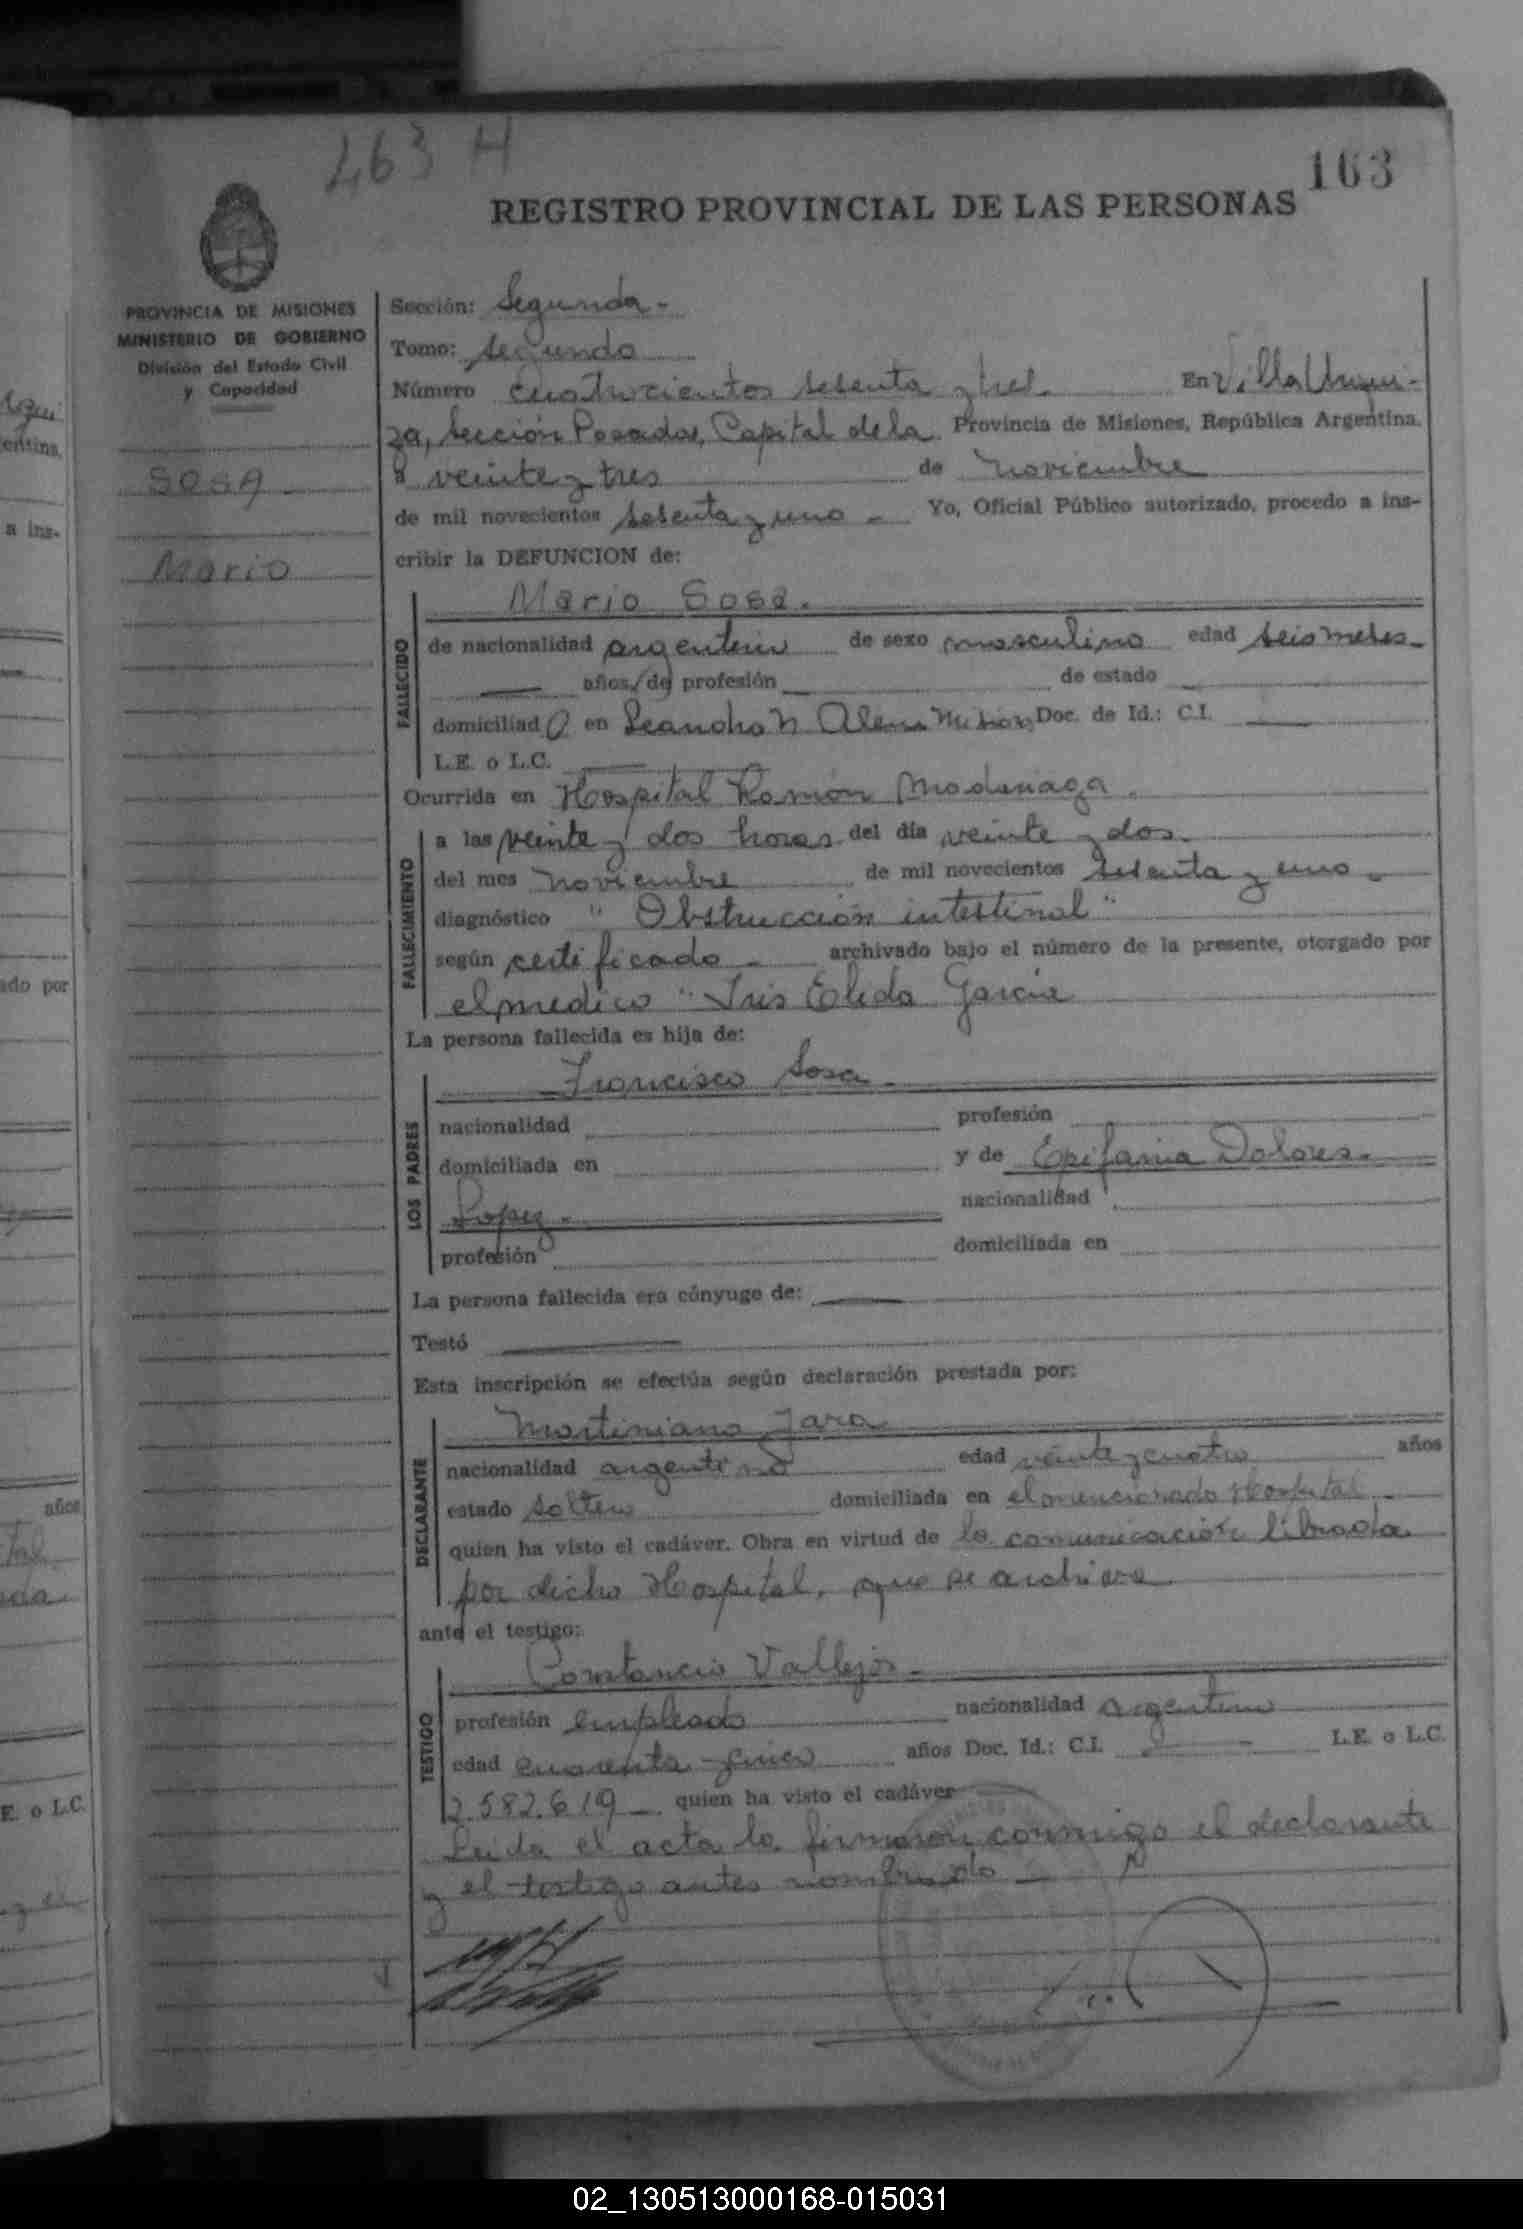 463 H
163
REGISTRO PROVINCIAL DE LAS PERSONAS
PROVINCIA DE MISIONES
MINISTERIO DE GOBIERNO
División del Estado Civil
y Capacidad
SOSA
Mario
Sección: Segunda-
Tomo: Segundo
Número cuatrocientos sesenta y tres. En Villa Urqui-
za, Sección Posadas, Capital de la Provincia de Misiones, República Argentina.
a veinte y tres de noviembre
de mil novecientos sesenta y uno - Yo, Oficial Público autorizado, procedo a ins-
cribir la DEFUNCION de:
Mario Sosa.
FALLECIDO
de nacionalidad argentino de sexo masculino edad seis meses-
años, de profesión de estado
domiciliado en Leandro N Alem Misiones Doc. de Id.: C.I.
L.E. o L.C.
Ocurrida en Hospital Ramón Madariaga.
FALLECIMIENTO
a las veinte y dos horas del día veinte y dos.
del mes noviembre de mil novecientos sesenta y uno-
diagnóstico "Obstrucción intestinal"
según certificado - archivado bajo el número de la presente, otorgado por
el medico "Iris Elida Garcia
La persona fallecida es hija de:
LOS PADRES
Francisco Sosa-
nacionalidad profesión
domiciliada en y de Epifania Dolores-
Lopez- nacionalidad
profesión domiciliada en
La persona fallecida era cónyuge de:
Testó
Esta inscripción se efectúa según declaración prestada por:
DECLARANTE
Martiniano Jara
nacionalidad argentino edad veinte y cuatro años
estado soltero domiciliada en el mencionado Hospital
quien ha visto el cadáver. Obra en virtud de la comunicación librada
por dicho Hospital, que se archiva
ante el testigo:
TESTIGO
Constancio Vallejos-
profesión empleado nacionalidad argentino
edad cuarenta y cinco años Doc. Id.: C.I. L.E. o L.C.
2.582.619 - quien ha visto el cadáver
Leida el acta la firmaron conmigo el declarante
y el testigo antes nombrado -
02_130513000168-015031